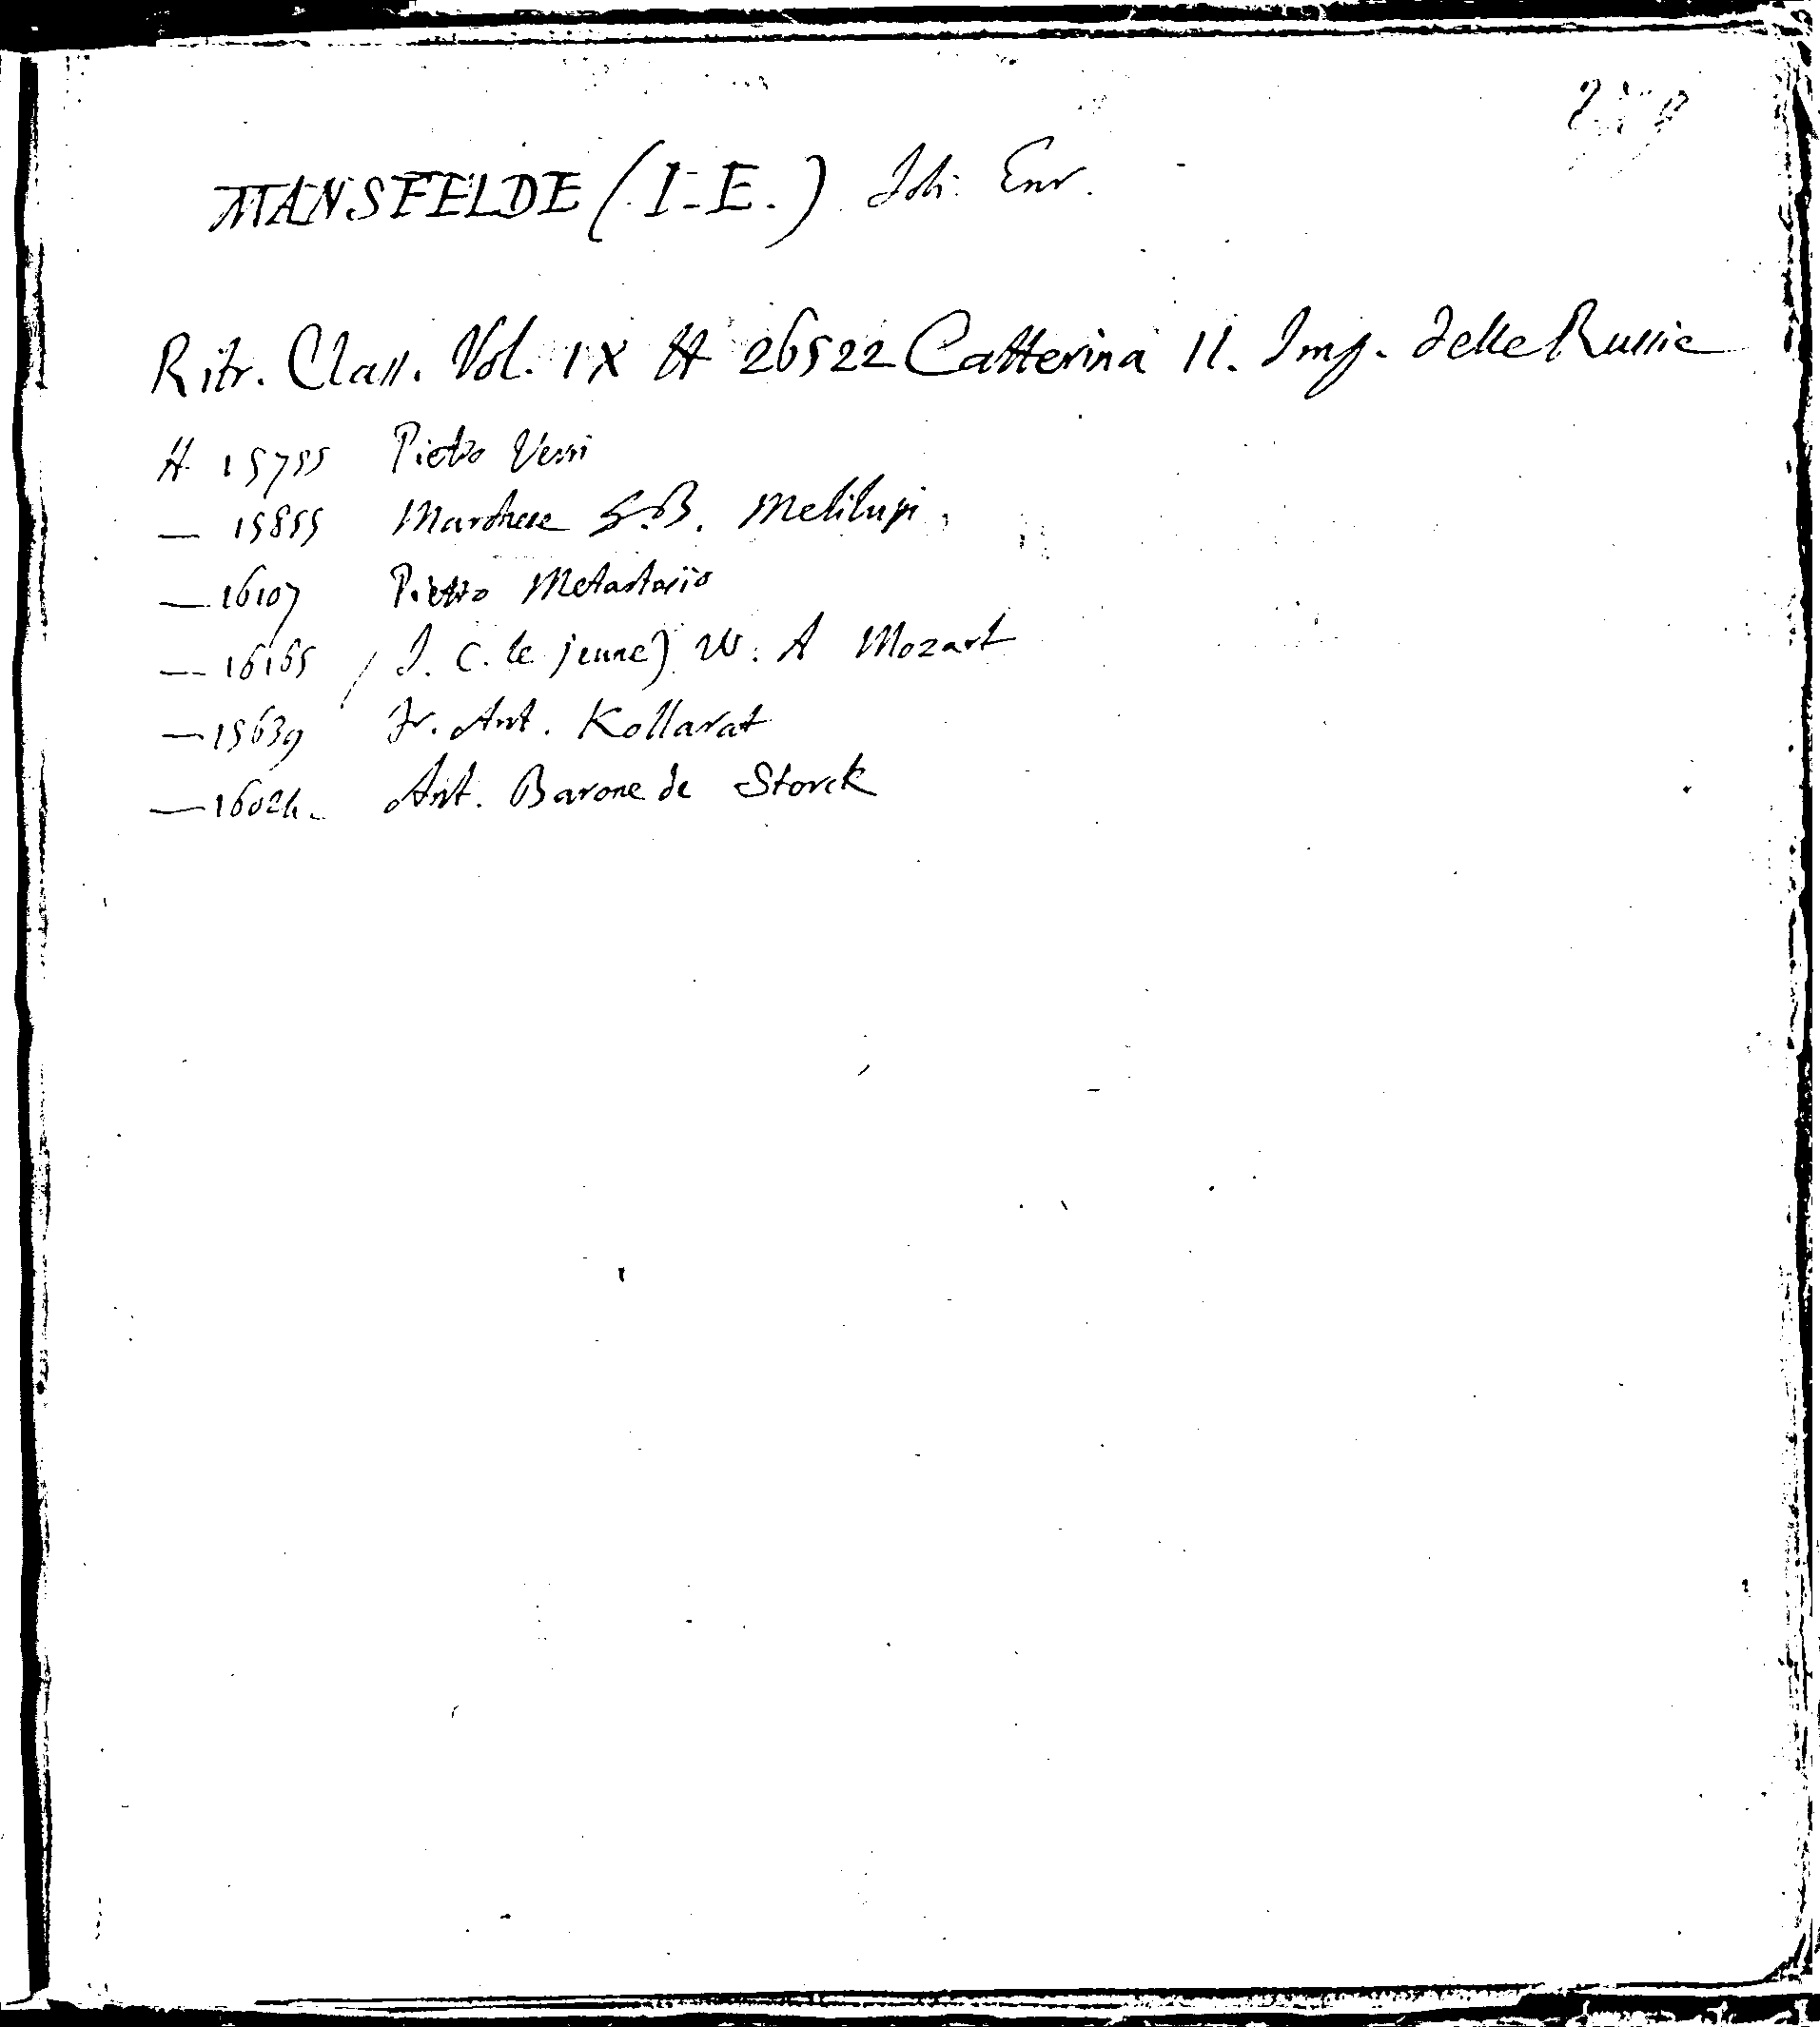 MANSFELDE (I-E.) Joh. Enr.
Ritr. Class. Vol. IX H 26522 Catterina II. Imp. delle Russie
H 15755 Pietro Verri
— 15855 Marchese G.B. Melilupi.
— 16107 Pietro Metastasio
— 16165 (J. C. le jeune) W. A Mozart
— 15639 Fr. Ant. Kollarat
— 16024. Ant. Barone de Storck